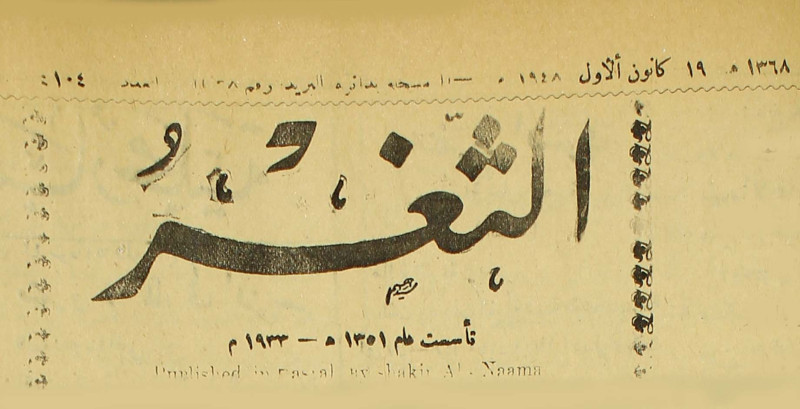 ١٣٦٨ ه ١٩ كانون ألاول ١٩٤٨ م مسجله بدائره البريد رقم العدد ١٠٤
الثغر
تأسست عام ١٣٥١ ه — ١٩٣٣ م
Published in by Shakir Al-Naama